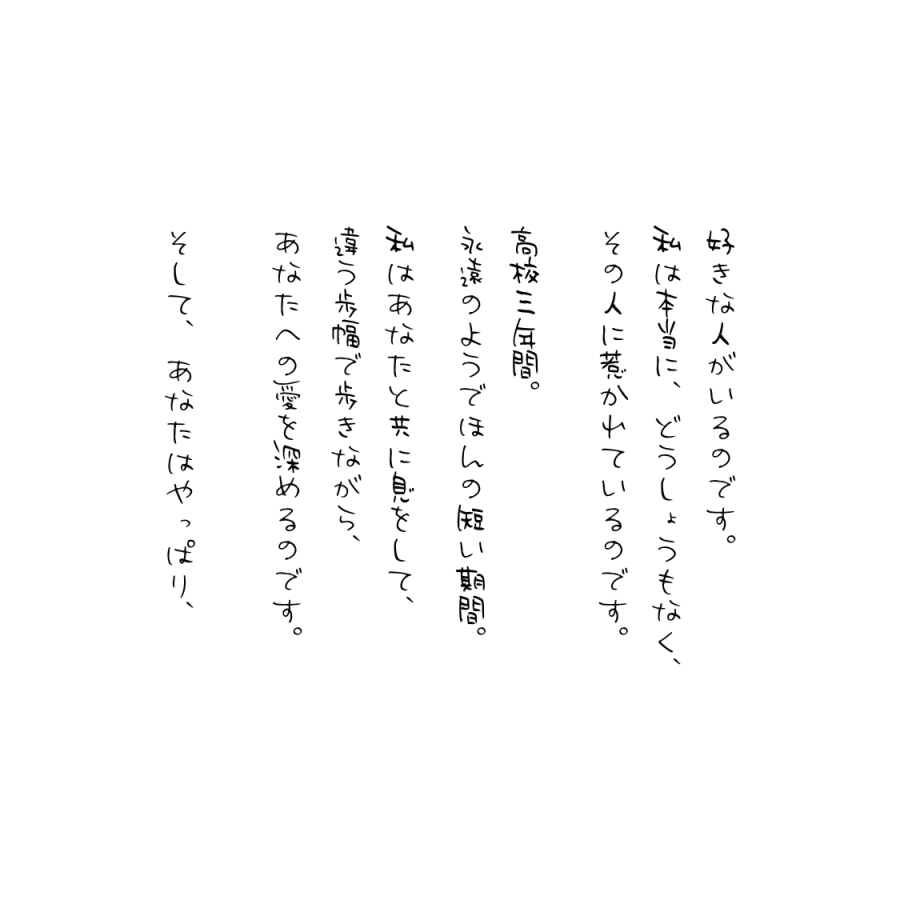 好きな人がいるのです。
私は本当に、どうしょうもなく、
その人に惹かれているのです。
高校三年間。
永遠のようでほんの短い期間。
私はあなたと共に息をして、
違う歩幅で歩きながら、
あなたへの愛を深めるのです。
そして、あなたはやっぱり、